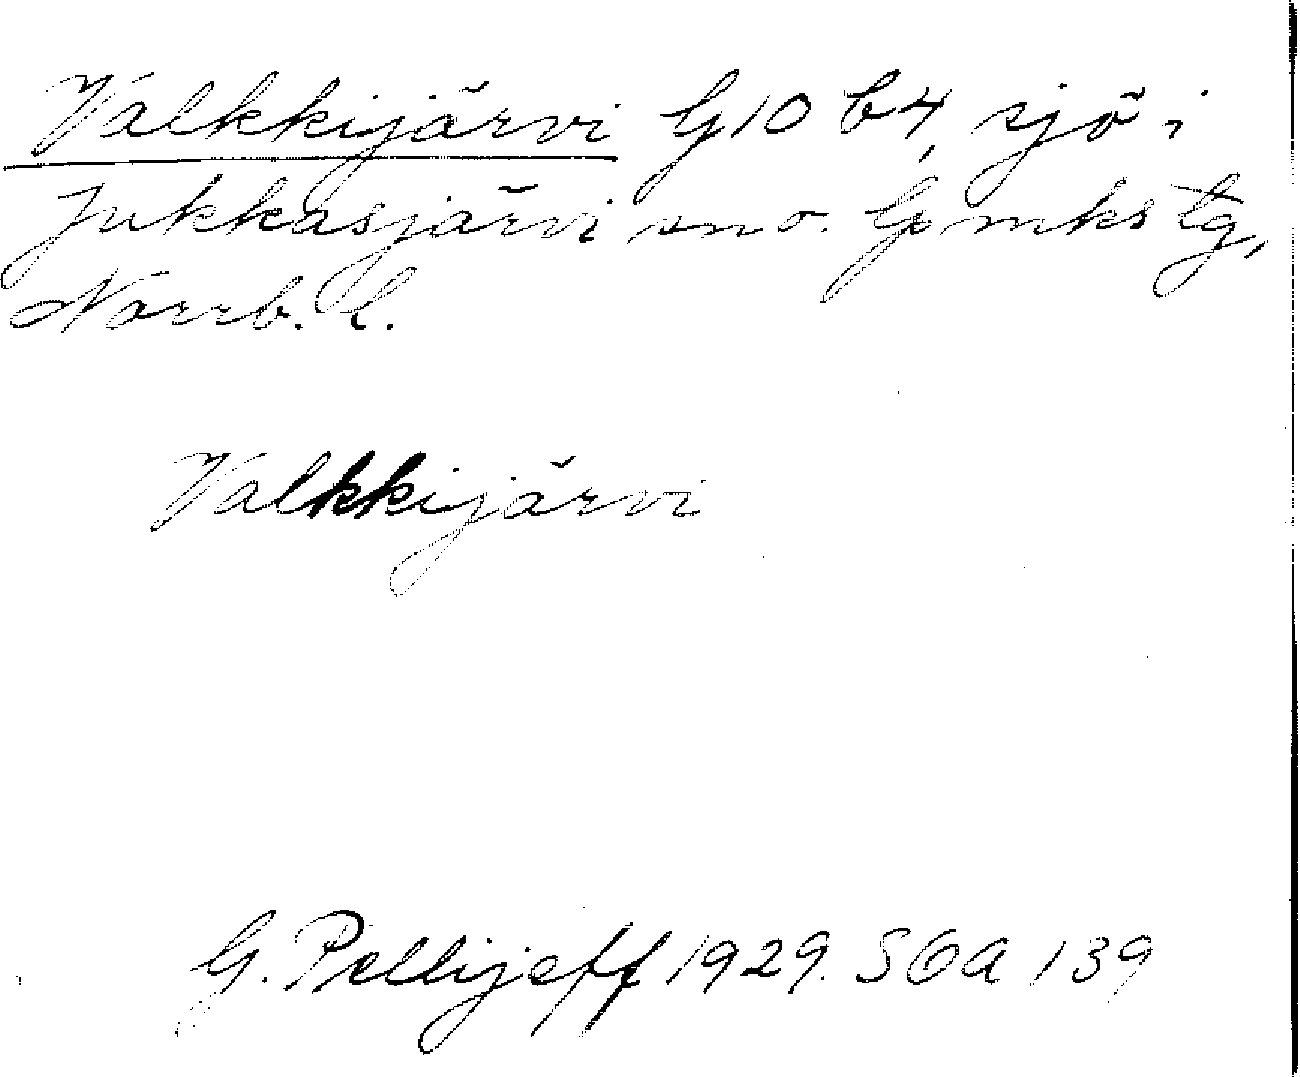 Valkkijärvi G10 b4, sjö i
Jukkasjärvi sn o. lpmks tg,
Norrb. l.
Valkkijärvi
G. Pellijeff 1929. SOA 139